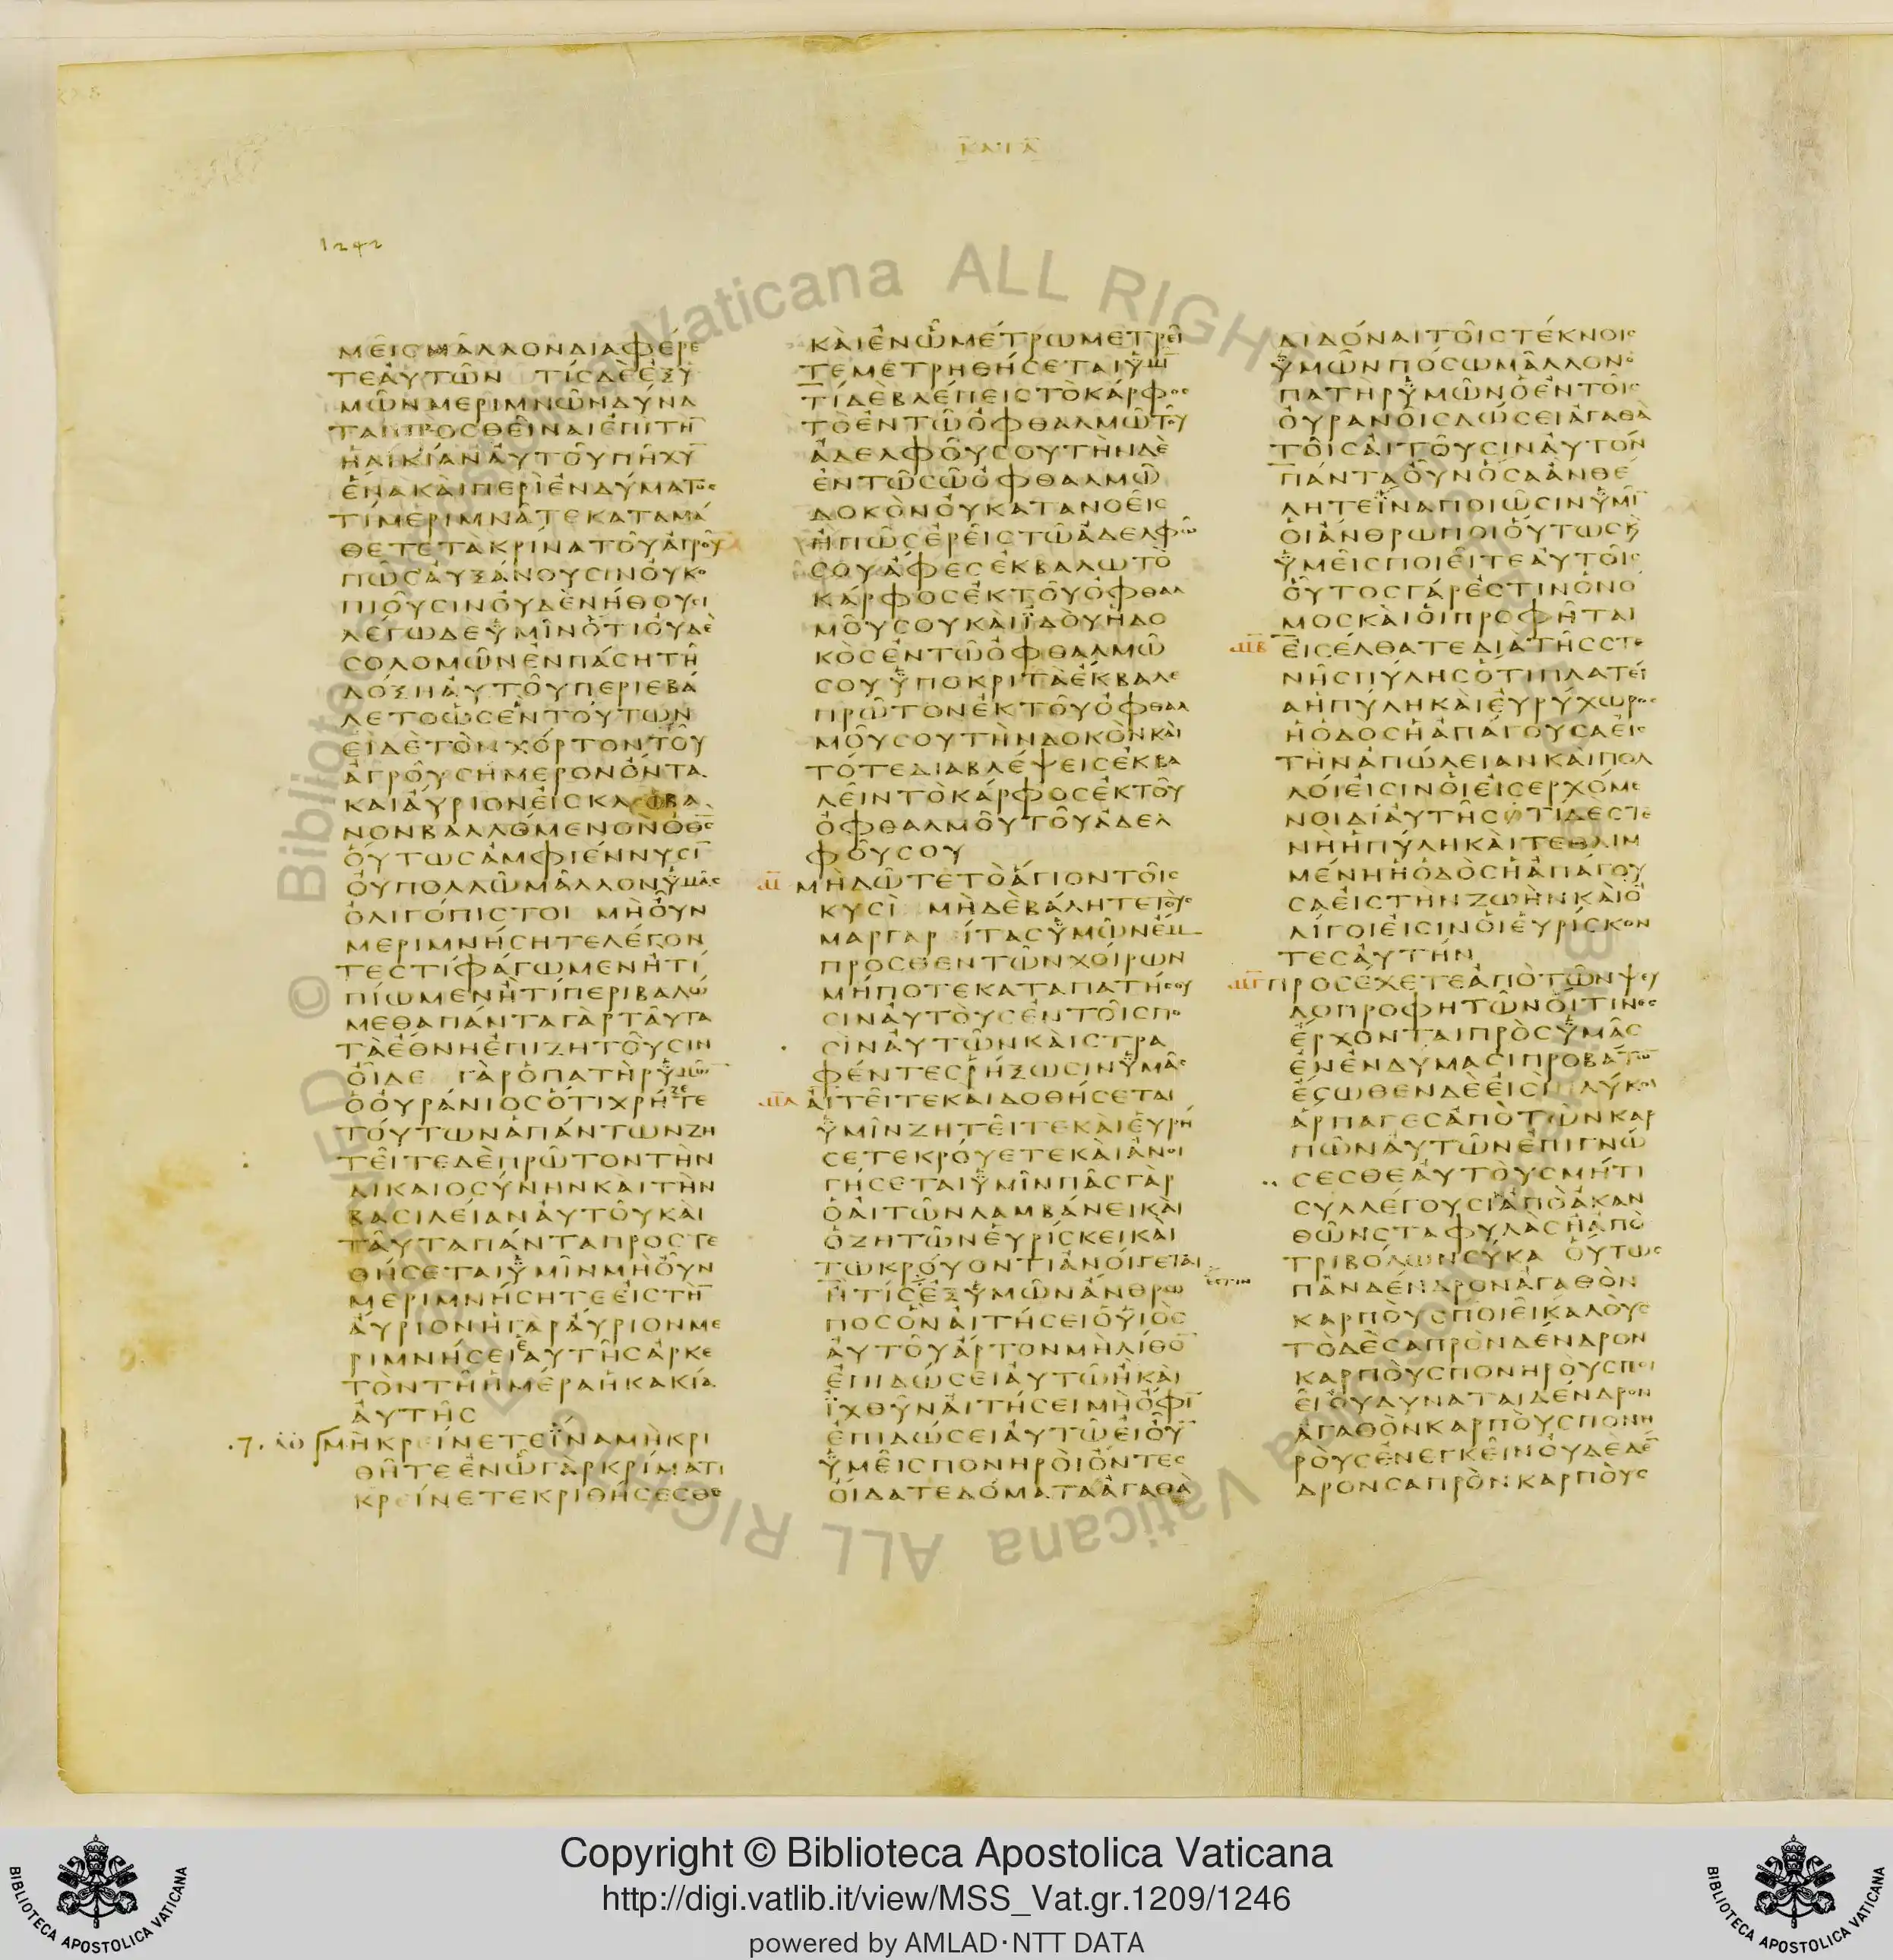 ΚΑΤΑ
1242
ΜΕΙΣ ΜΑΛΛΟΝ ΔΙΑΦΕΡΕ
ΤΕ ΑΥΤΩΝ ΤΙΣ ΔΕ ΕΞ Υ
ΜΩΝ ΜΕΡΙΜΝΩΝ ΔΥΝΑ
ΤΑΙ ΠΡΟΣΘΕΙΝΑΙ ΕΠΙ ΤΗ̅
ΗΛΙΚΙΑΝ ΑΥΤΟΥ ΠΗΧΥ̅
ΕΝΑ ΚΑΙ ΠΕΡΙ ΕΝΔΥΜΑΤΟΣ
ΤΙ ΜΕΡΙΜΝΑΤΕ ΚΑΤΑΜΑ
ΘΕΤΕ ΤΑ ΚΡΙΝΑ ΤΟΥ ΑΓΡΟΥ
ΠΩΣ ΑΥΞΑΝΟΥΣΙΝ ΟΥ ΚΟ
ΠΙΟΥΣΙΝ ΟΥΔΕ ΝΗΘΟΥΣΙ
ΛΕΓΩ ΔΕ ΥΜΙΝ ΟΤΙ ΟΥΔΕ
ΣΟΛΟΜΩΝ ΕΝ ΠΑΣΗ ΤΗ
ΔΟΞΗ ΑΥΤΟΥ ΠΕΡΙΕΒΑ
ΛΕΤΟ ΩΣ ΕΝ ΤΟΥΤΩΝ
ΕΙ ΔΕ ΤΟΝ ΧΟΡΤΟΝ ΤΟΥ
ΑΓΡΟΥ ΣΗΜΕΡΟΝ ΟΝΤΑ
ΚΑΙ ΑΥΡΙΟΝ ΕΙΣ ΚΛΕΙΒΑ
ΝΟΝ ΒΑΛΛΟΜΕΝΟΝ Ο Θ̅Σ̅
ΟΥΤΩΣ ΑΜΦΙΕΝΝΥΣΙ̅
ΟΥ ΠΟΛΛΩ ΜΑΛΛΟΝ ΥΜΑΣ
ΟΛΙΓΟΠΙΣΤΟΙ ΜΗ ΟΥΝ
ΜΕΡΙΜΝΗΣΗΤΕ ΛΕΓΟΝ
ΤΕΣ ΤΙ ΦΑΓΩΜΕΝ Η ΤΙ
ΠΙΩΜΕΝ Η ΤΙ ΠΕΡΙΒΑΛΩ
ΜΕΘΑ ΠΑΝΤΑ ΓΑΡ ΤΑΥΤΑ
ΤΑ ΕΘΝΗ ΕΠΙΖΗΤΟΥΣΙΝ
ΟΙΔΕ ΓΑΡ Ο ΠΑΤΗΡ ΥΜΩΝ
Ο ΟΥΡΑΝΙΟΣ ΟΤΙ ΧΡΗΖΕΤΕ
ΤΟΥΤΩΝ ΑΠΑΝΤΩΝ ΖΗ
ΤΕΙΤΕ ΔΕ ΠΡΩΤΟΝ ΤΗΝ
ΔΙΚΑΙΟΣΥΝΗΝ ΚΑΙ ΤΗΝ
ΒΑΣΙΛΕΙΑΝ ΑΥΤΟΥ ΚΑΙ
ΤΑΥΤΑ ΠΑΝΤΑ ΠΡΟΣΤΕ
ΘΗΣΕΤΑΙ ΥΜΙΝ ΜΗ ΟΥΝ
ΜΕΡΙΜΝΗΣΗΤΕ ΕΙΣ ΤΗ̅
ΑΥΡΙΟΝ Η ΓΑΡ ΑΥΡΙΟΝ ΜΕ
ΡΙΜΝΗΣΕΙ ΕΑΥΤΗΣ ΑΡΚΕ
ΤΟΝ ΤΗ ΗΜΕΡΑ Η ΚΑΚΙΑ
ΑΥΤΗΣ
.7. ΜΗ ΚΡΕΙΝΕΤΕ ΙΝΑ ΜΗ ΚΡΙ
ΘΗΤΕ ΕΝ Ω ΓΑΡ ΚΡΙΜΑΤΙ
ΚΡΕΙΝΕΤΕ ΚΡΙΘΗΣΕΣΘΕ
ΚΑΙ ΕΝ Ω ΜΕΤΡΩ ΜΕΤΡΕΙ
ΤΕ ΜΕΤΡΗΘΗΣΕΤΑΙ ΥΜΙ̅
ΤΙ ΔΕ ΒΛΕΠΕΙΣ ΤΟ ΚΑΡΦΟΣ
ΤΟ ΕΝ ΤΩ ΟΦΘΑΛΜΩ ΤΟΥ
ΑΔΕΛΦΟΥ ΣΟΥ ΤΗΝ ΔΕ
ΕΝ ΤΩ ΣΩ ΟΦΘΑΛΜΩ
ΔΟΚΟΝ ΟΥ ΚΑΤΑΝΟΕΙΣ
Η ΠΩΣ ΕΡΕΙΣ ΤΩ ΑΔΕΛΦΩ
ΣΟΥ ΑΦΕΣ ΕΚΒΑΛΩ ΤΟ
ΚΑΡΦΟΣ ΕΚ ΤΟΥ ΟΦΘΑΛ
ΜΟΥ ΣΟΥ ΚΑΙ ΙΔΟΥ Η ΔΟ
ΚΟΣ ΕΝ ΤΩ ΟΦΘΑΛΜΩ
ΣΟΥ ΥΠΟΚΡΙΤΑ ΕΚΒΑΛΕ
ΠΡΩΤΟΝ ΕΚ ΤΟΥ ΟΦΘΑΛ
ΜΟΥ ΣΟΥ ΤΗΝ ΔΟΚΟΝ ΚΑΙ
ΤΟΤΕ ΔΙΑΒΛΕΨΕΙΣ ΕΚΒΑ
ΛΕΙΝ ΤΟ ΚΑΡΦΟΣ ΕΚ ΤΟΥ
ΟΦΘΑΛΜΟΥ ΤΟΥ ΑΔΕΛ
ΦΟΥ ΣΟΥ
ΜΗ ΔΩΤΕ ΤΟ ΑΓΙΟΝ ΤΟΙΣ
ΚΥΣΙ ΜΗΔΕ ΒΑΛΗΤΕ ΤΟΥΣ
ΜΑΡΓΑΡΕΙΤΑΣ ΥΜΩΝ ΕΜ
ΠΡΟΣΘΕΝ ΤΩΝ ΧΟΙΡΩΝ
ΜΗΠΟΤΕ ΚΑΤΑΠΑΤΗΣΟΥ
ΣΙΝ ΑΥΤΟΥΣ ΕΝ ΤΟΙΣ ΠΟ
ΣΙΝ ΑΥΤΩΝ ΚΑΙ ΣΤΡΑ
ΦΕΝΤΕΣ ΡΗΞΩΣΙΝ ΥΜΑΣ
ΑΙΤΕΙΤΕ ΚΑΙ ΔΟΘΗΣΕΤΑΙ
ΥΜΙΝ ΖΗΤΕΙΤΕ ΚΑΙ ΕΥΡΗ
ΣΕΤΕ ΚΡΟΥΕΤΕ ΚΑΙ ΑΝΟΙ
ΓΗΣΕΤΑΙ ΥΜΙΝ ΠΑΣ ΓΑΡ
Ο ΑΙΤΩΝ ΛΑΜΒΑΝΕΙ ΚΑΙ
Ο ΖΗΤΩΝ ΕΥΡΙΣΚΕΙ ΚΑΙ
ΤΩ ΚΡΟΥΟΝΤΙ ΑΝΟΙΓΕΤΑΙ
Η ΤΙΣ ΕΞ ΥΜΩΝ ΑΝΘΡΩ ΕΣΤΙΝ
ΠΟΣ ΟΝ ΑΙΤΗΣΕΙ Ο ΥΙΟΣ
ΑΥΤΟΥ ΑΡΤΟΝ ΜΗ ΛΙΘΟ̅
ΕΠΙΔΩΣΕΙ ΑΥΤΩ Η ΚΑΙ
ΙΧΘΥΝ ΑΙΤΗΣΕΙ ΜΗ ΟΦΙ̅
ΕΠΙΔΩΣΕΙ ΑΥΤΩ ΕΙ ΟΥ̅
ΥΜΕΙΣ ΠΟΝΗΡΟΙ ΟΝΤΕΣ
ΟΙΔΑΤΕ ΔΟΜΑΤΑ ΑΓΑΘΑ
ΔΙΔΟΝΑΙ ΤΟΙΣ ΤΕΚΝΟΙΣ
ΥΜΩΝ ΠΟΣΩ ΜΑΛΛΟΝ Ο
ΠΑΤΗΡ ΥΜΩΝ Ο ΕΝ ΤΟΙΣ
ΟΥΡΑΝΟΙΣ ΔΩΣΕΙ ΑΓΑΘΑ
ΤΟΙΣ ΑΙΤΟΥΣΙΝ ΑΥΤΟΝ
ΠΑΝΤΑ ΟΥΝ ΟΣΑ ΑΝ ΘΕ
ΛΗΤΕ ΙΝΑ ΠΟΙΩΣΙΝ ΥΜΙ̅
ΟΙ ΑΝΘΡΩΠΟΙ ΟΥΤΩΣ Ϗ
ΥΜΕΙΣ ΠΟΙΕΙΤΕ ΑΥΤΟΙΣ
ΟΥΤΟΣ ΓΑΡ ΕΣΤΙΝ Ο ΝΟ
ΜΟΣ ΚΑΙ ΟΙ ΠΡΟΦΗΤΑΙ
ΕΙΣΕΛΘΑΤΕ ΔΙΑ ΤΗΣ ΣΤΕ
ΝΗΣ ΠΥΛΗΣ ΟΤΙ ΠΛΑΤΕΙ
Α Η ΠΥΛΗ ΚΑΙ ΕΥΡΥΧΩΡΟΣ
Η ΟΔΟΣ Η ΑΠΑΓΟΥΣΑ ΕΙΣ
ΤΗΝ ΑΠΩΛΕΙΑΝ ΚΑΙ ΠΟΛ
ΛΟΙ ΕΙΣΙΝ ΟΙ ΕΙΣΕΡΧΟΜΕ
ΝΟΙ ΔΙ ΑΥΤΗΣ ΟΤΙ ΔΕ ΣΤΕ
ΝΗ Η ΠΥΛΗ ΚΑΙ ΤΕΘΛΙΜ
ΜΕΝΗ Η ΟΔΟΣ Η ΑΠΑΓΟΥ
ΣΑ ΕΙΣ ΤΗΝ ΖΩΗΝ ΚΑΙ Ο
ΛΙΓΟΙ ΕΙΣΙΝ ΟΙ ΕΥΡΙΣΚΟΝ
ΤΕΣ ΑΥΤΗΝ
ΠΡΟΣΕΧΕΤΕ ΑΠΟ ΤΩΝ ΨΕΥ
ΔΟΠΡΟΦΗΤΩΝ ΟΙΤΙΝΕΣ
ΕΡΧΟΝΤΑΙ ΠΡΟΣ ΥΜΑΣ
ΕΝ ΕΝΔΥΜΑΣΙ ΠΡΟΒΑΤΩ̅
ΕΣΩΘΕΝ ΔΕ ΕΙΣΙ ΛΥΚΟΙ
ΑΡΠΑΓΕΣ ΑΠΟ ΤΩΝ ΚΑΡ
ΠΩΝ ΑΥΤΩΝ ΕΠΙΓΝΩ
ΣΕΣΘΕ ΑΥΤΟΥΣ ΜΗΤΙ
ΣΥΛΛΕΓΟΥΣΙ ΑΠΟ ΑΚΑΝ
ΘΩΝ ΣΤΑΦΥΛΑΣ Η ΑΠΟ
ΤΡΙΒΟΛΩΝ ΣΥΚΑ ΟΥΤΩΣ
ΠΑΝ ΔΕΝΔΡΟΝ ΑΓΑΘΟΝ
ΚΑΡΠΟΥΣ ΠΟΙΕΙ ΚΑΛΟΥΣ
ΤΟ ΔΕ ΣΑΠΡΟΝ ΔΕΝΔΡΟΝ
ΚΑΡΠΟΥΣ ΠΟΝΗΡΟΥΣ ΠΟΙ
ΕΙ ΟΥ ΔΥΝΑΤΑΙ ΔΕΝΔΡΟΝ
ΑΓΑΘΟΝ ΚΑΡΠΟΥΣ ΠΟΝΗ
ΡΟΥΣ ΕΝΕΓΚΕΙΝ ΟΥΔΕ ΔΕ̅
ΔΡΟΝ ΣΑΠΡΟΝ ΚΑΡΠΟΥΣ
© Biblioteca Vaticana ALL RIGHTS
Copyright © Biblioteca Apostolica Vaticana
http://digi.vatlib.it/view/MSS_Vat.gr.1209/1246
powered by AMLAD·NTT DATA
BIBLIOTECA APOSTOLICA VATICANA
BIBLIOTECA APOSTOLICA VATICANA